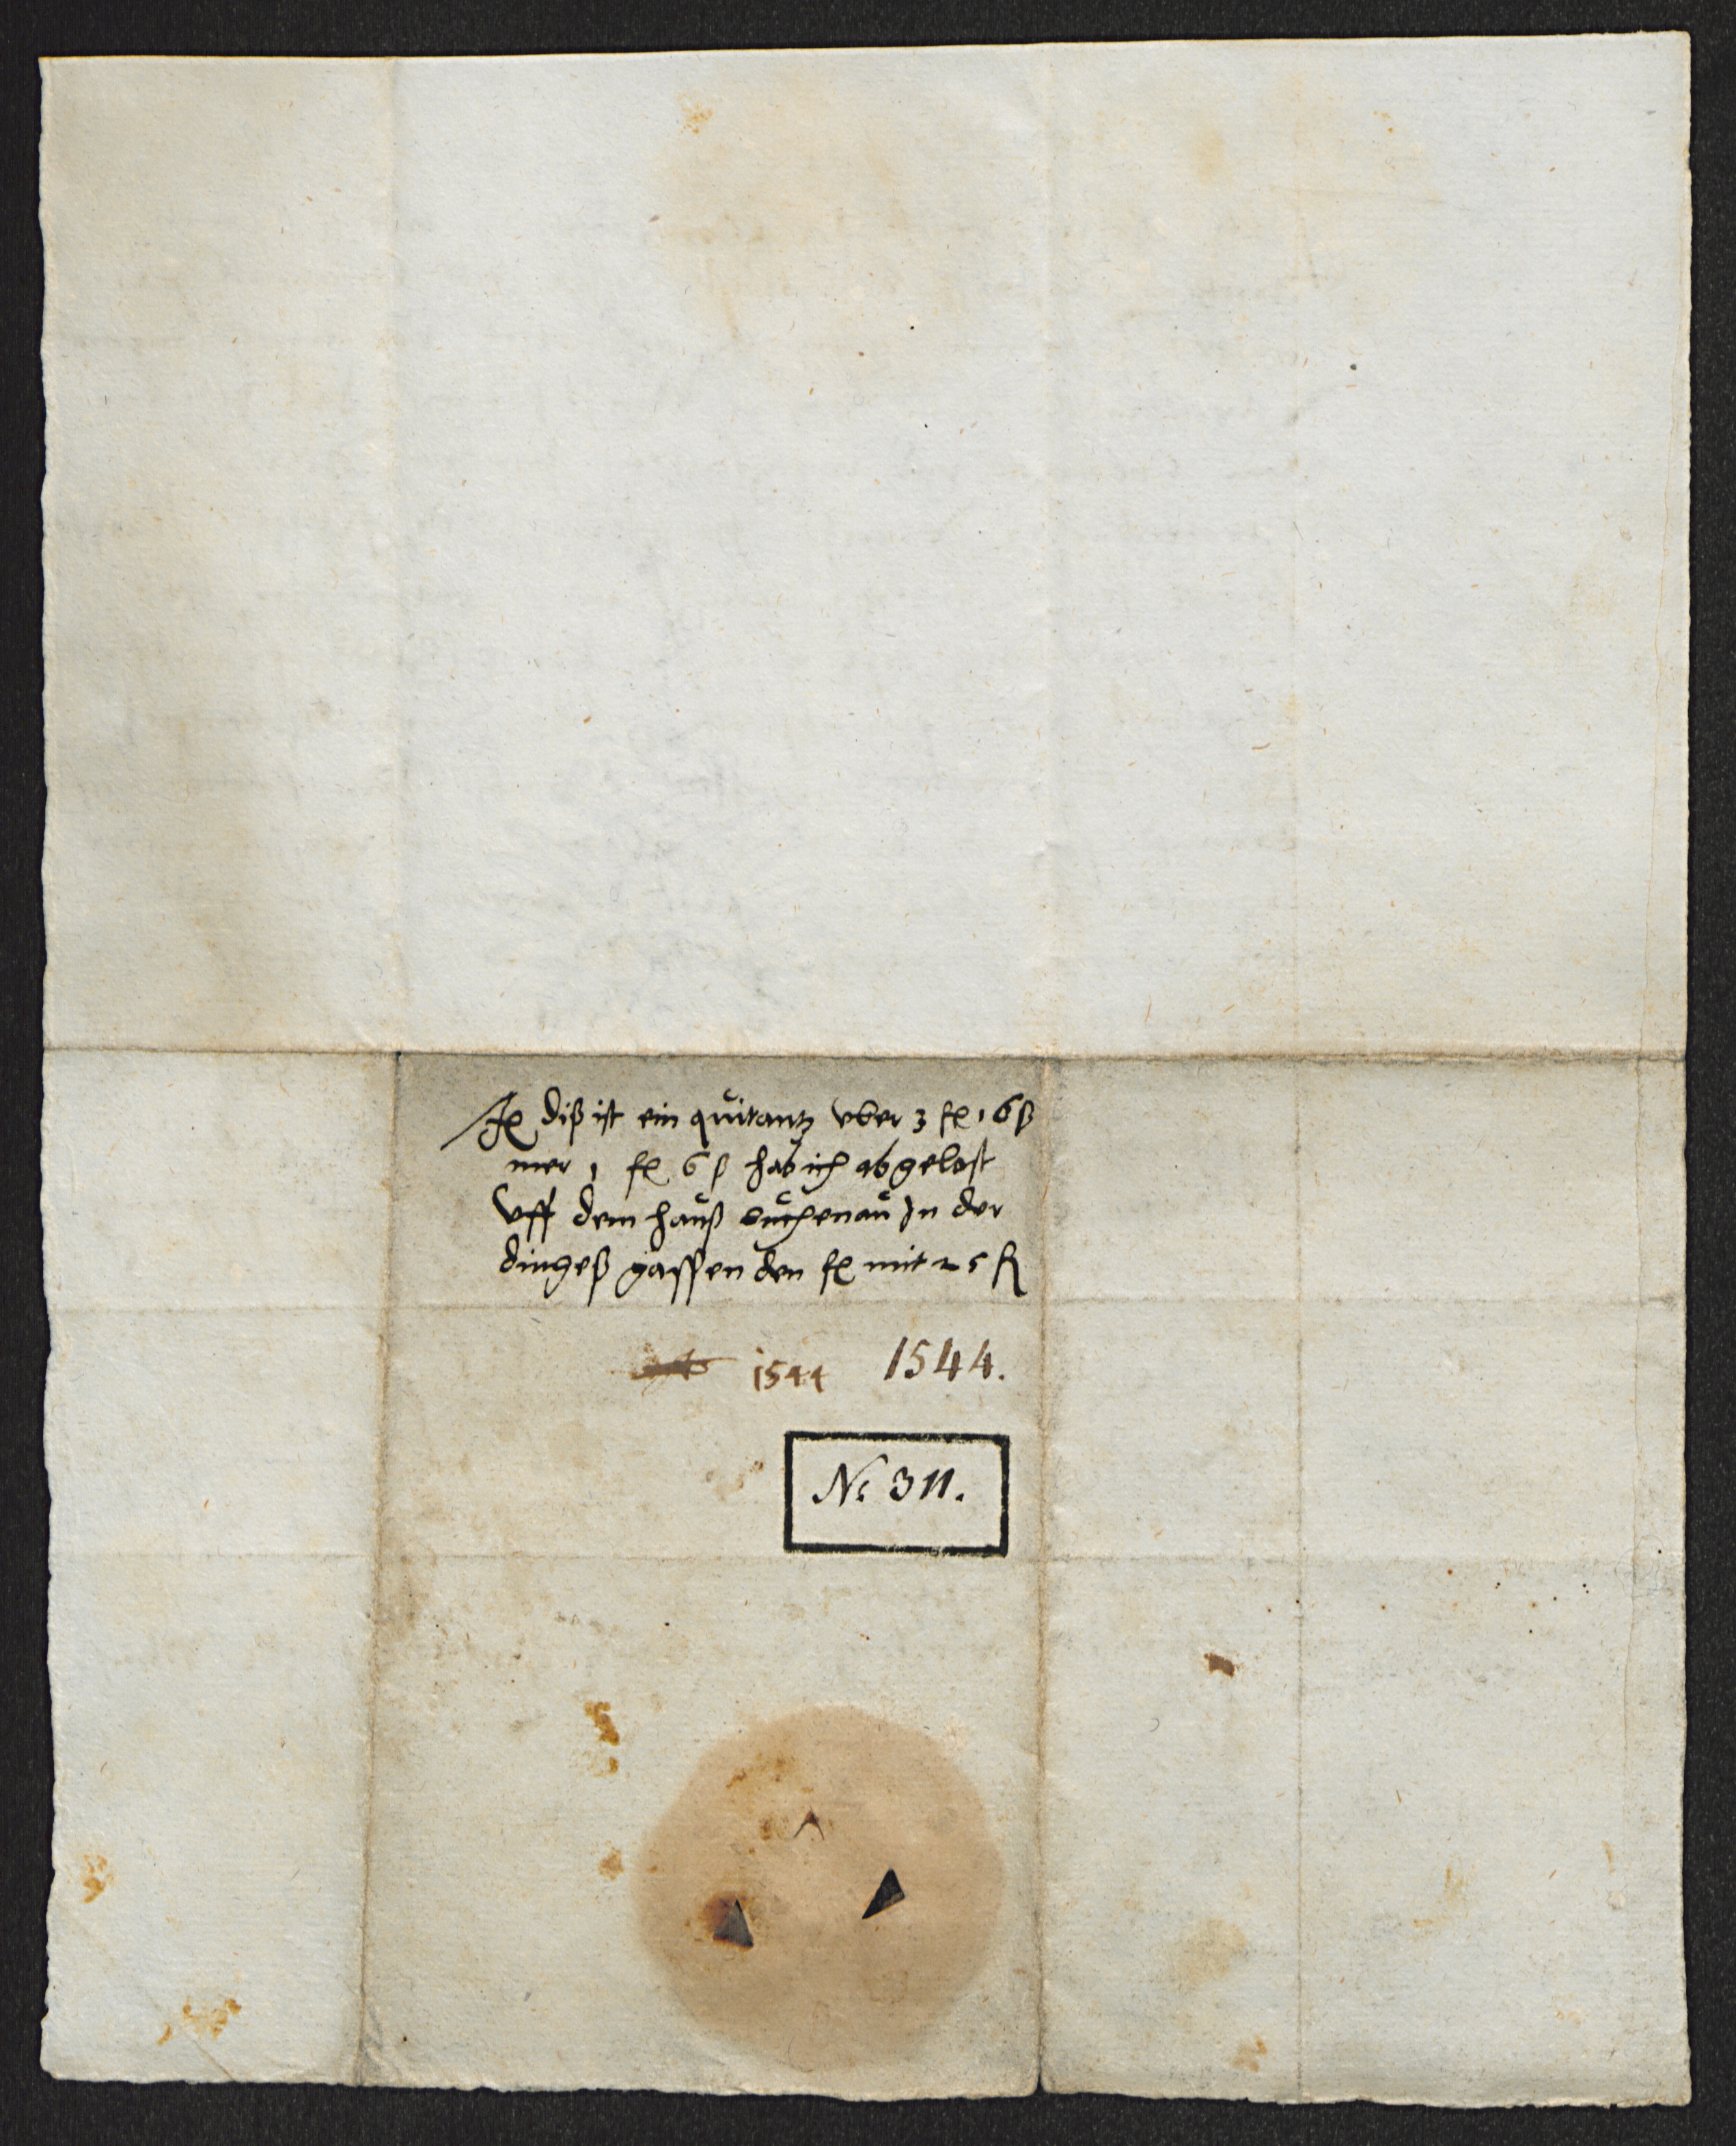 It diß ist ein quitantz vber 3 fl 16 ß
mer 1 fl 6 ß hab ich abgelost
vff dem hauß buchenau In der
dingeß gassen den fl mit 25 fl
1544 1544.
No 311.